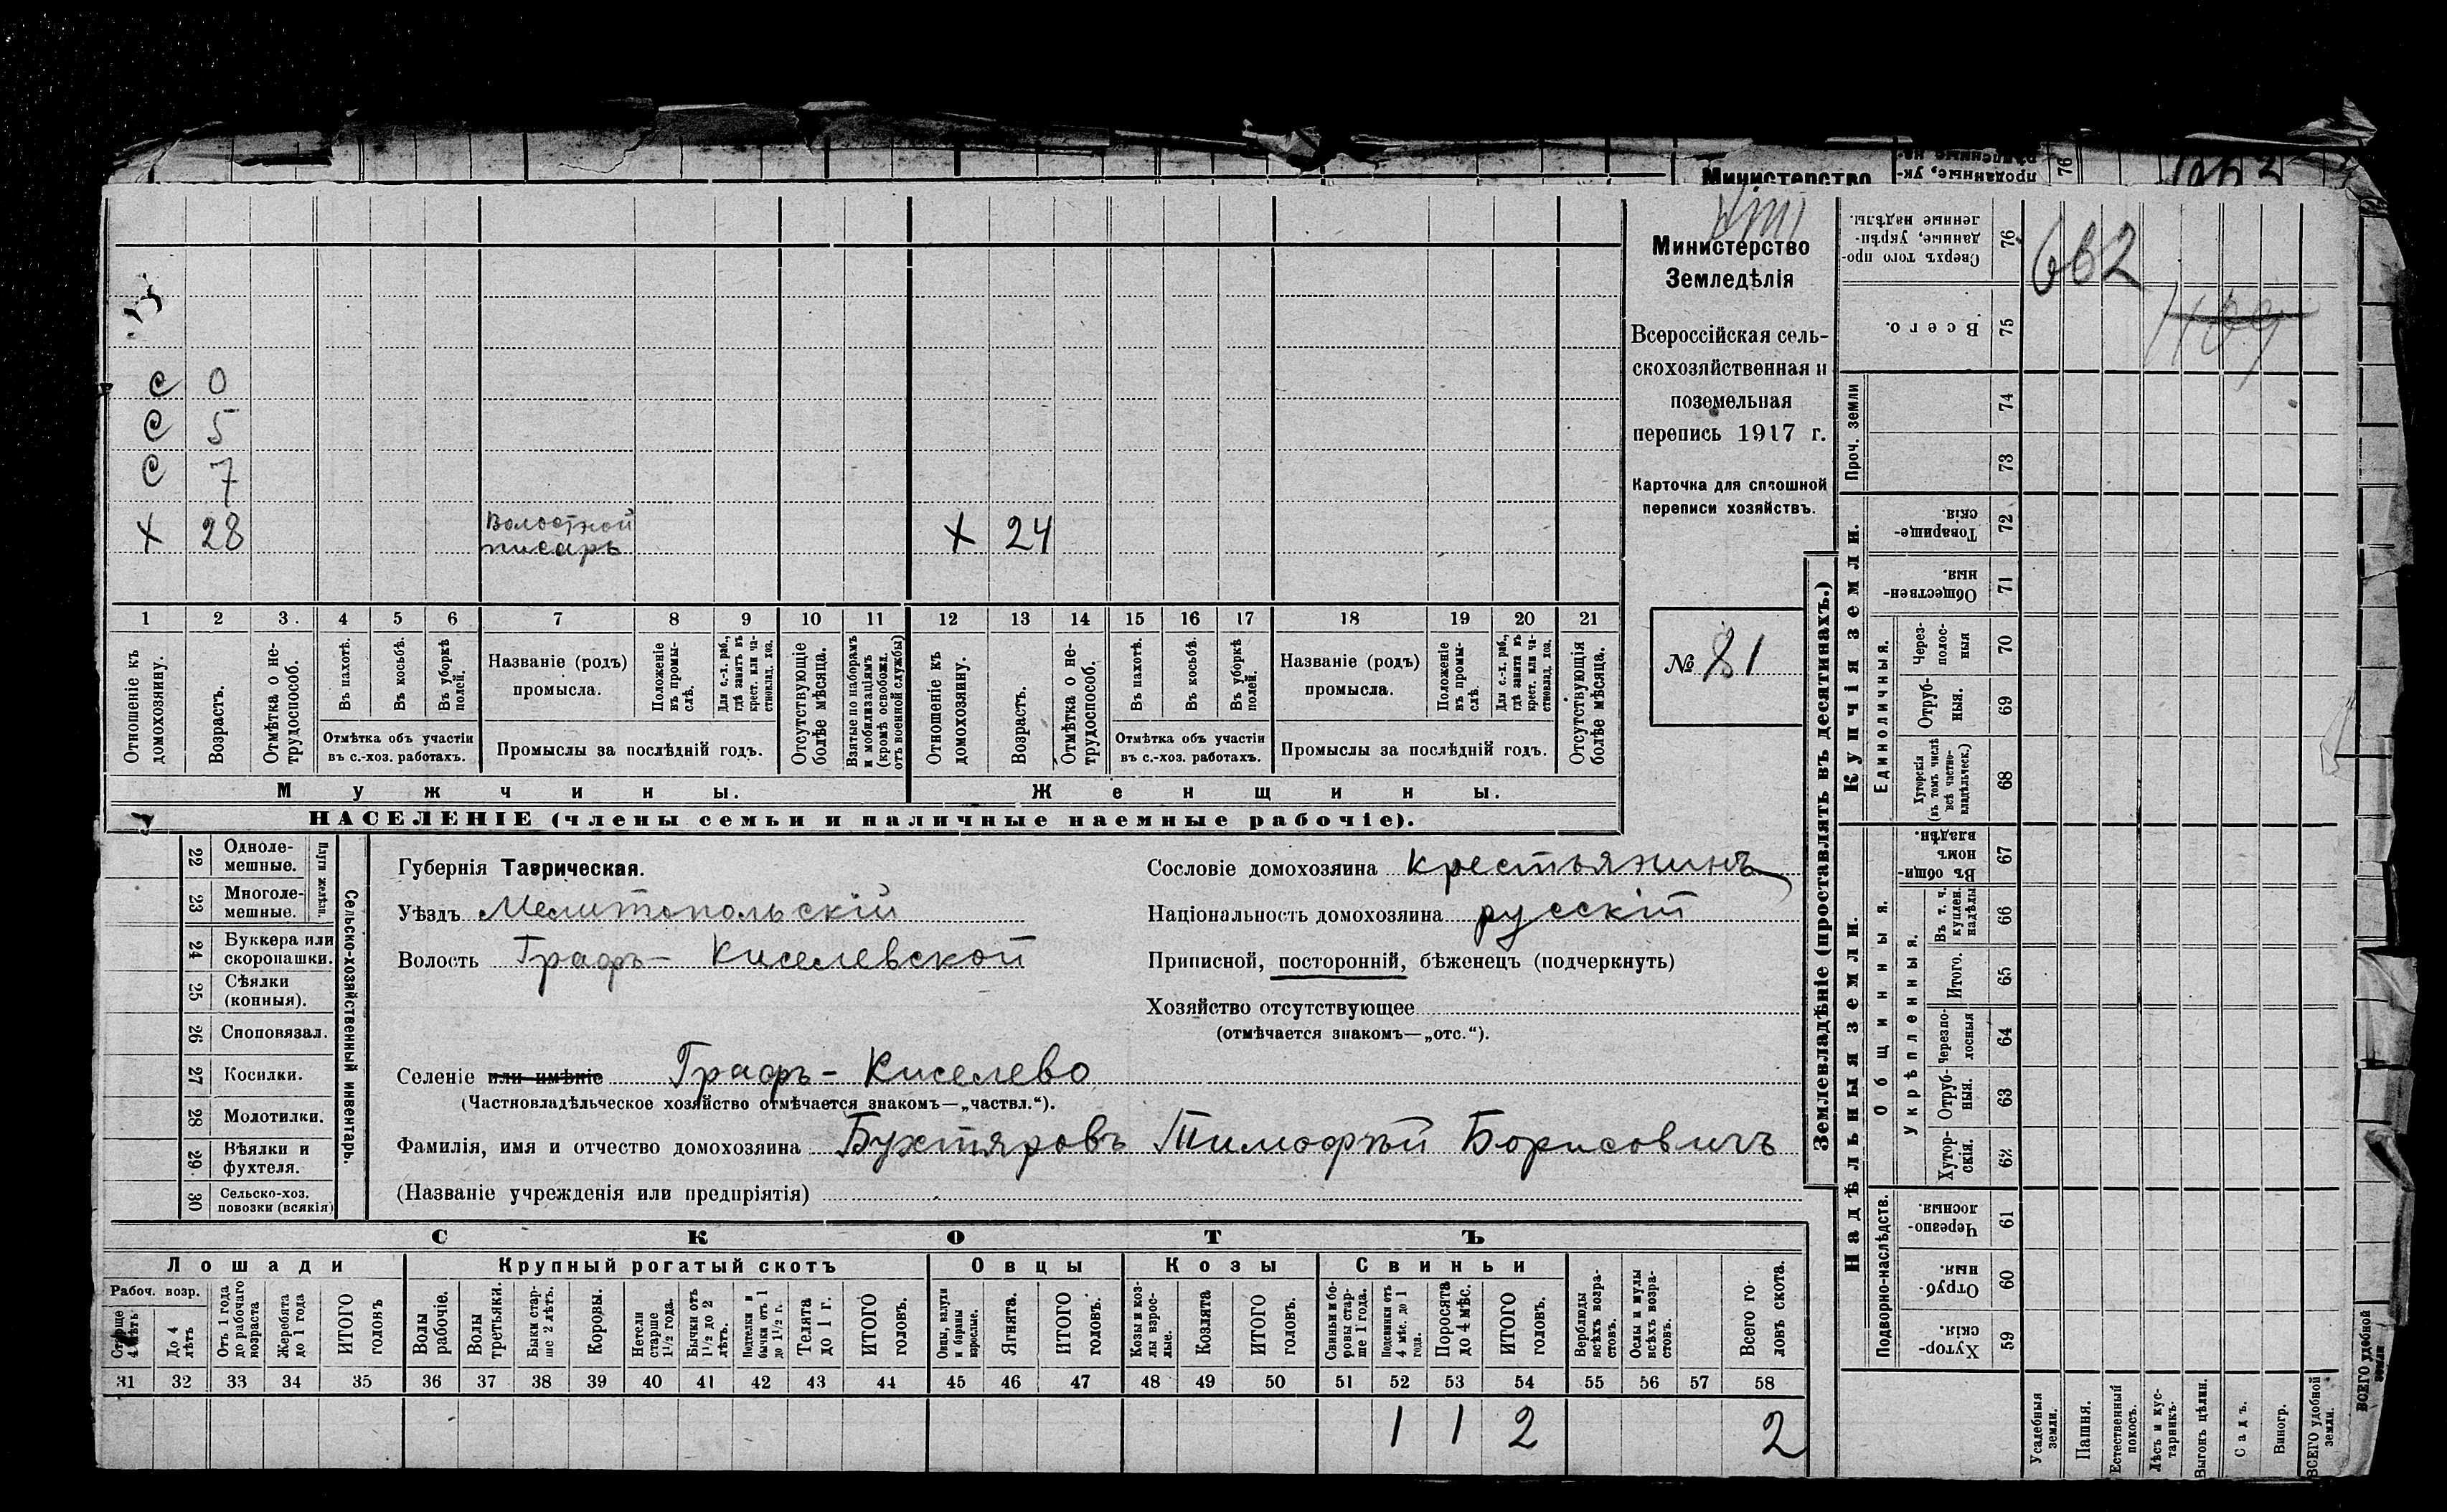 Министерство
проданные, ук-
76
Министерство
Земледѣлія
Всероссійская сель-
скохозяйственная и
поземельная
перепись 1917 г.
Карточка для сплошной
переписи хозяйствъ.
№ 81
с 0
с 5
с 7
х 28 Волостной писарь х 24
1 2 3 4 5 6 7 8 9 10 11 12 13 14 15 16 17 18 19 20 21
Отношеніе къ домохозяину.
Возрастъ.
Отмѣтка о не-трудоспособ.
Въ пахотѣ.
Въ косьбѣ.
Въ уборкѣ полей.
Отмѣтка объ участіи
въ с.-хоз. работахъ.
Названіе (родъ)
промысла.
Положеніе въ промы-слѣ.
Для с.-х. раб., гдѣ занятъ въ крест. или ча-стновлад. хоз.
Промыслы за послѣдній годъ.
Отсутствующіе болѣе мѣсяца.
Взятые по наборамъ и мобилизаціямъ (кромѣ освобожд. отъ военной службы)
Отношеніе къ домохозяину.
Возрастъ.
Отмѣтка о не-трудоспособ.
Въ пахотѣ.
Въ косьбѣ.
Въ уборкѣ полей.
Отмѣтка объ участіи
въ с.-хоз. работахъ.
Названіе (родъ)
промысла.
Положеніе въ промы-слѣ.
Для с.-х. раб., гдѣ занята въ крест. или ча-стновлад. хоз.
Промыслы за послѣдній годъ.
Отсутствующія болѣе мѣсяца.
Мужчины. Женщины.
НАСЕЛЕНІЕ (члены семьи и наличные наемные рабочіе).
22 Одноле-мешные.
23 Многоле-мешные.
Плуги желѣзн.
24 Буккера или скоропашки.
25 Сѣялки (конныя).
26 Сноповязал.
27 Косилки.
28 Молотилки.
29 Вѣялки и фухтеля.
30 Сельско-хоз. повозки (всякія)
Сельско-хозяйственный инвентарь.
Губернія Таврическая.
Уѣздъ Мелитопольскій
Волость Графъ-Киселевской
Сословіе домохозяина крестьянинъ
Національность домохозяина русскій
Приписной, посторонній, бѣженецъ (подчеркнуть)
Хозяйство отсутствующее
(отмѣчается знакомъ—„отс.“).
Селеніе или имѣніе Графъ-Киселево
(Частновладѣльческое хозяйство отмѣчается знакомъ—„частвл.“).
Фамилія, имя и отчество домохозяина Бухтяровъ Тимофѣй Борисовичъ
(Названіе учрежденія или предпріятія)
СКОТЪ
Лошади Крупный рогатый скотъ Овцы Козы Свиньи
Рабоч. возр.
Старше 4 лѣтъ
До 4 лѣтъ
Отъ 1 года до рабочаго возраста
Жеребята до 1 года
ИТОГО головъ
Волы рабочіе.
Волы третьяки.
Быки стар-ше 2 лѣтъ.
Коровы.
Нетели старше 1½ года.
Бычки отъ 1½ до 2 лѣтъ.
Подтелки и бычки отъ 1 до 1½ г.
Телята до 1 г.
ИТОГО головъ.
Овцы, валухи и бараны взрослые.
Ягнята.
ИТОГО головъ.
Козы и коз-лы взрос-лые.
Козлята
ИТОГО головъ.
Свиньи и бо-ровы стар-ше 1 года.
Подсвинки отъ 4 мѣс. до 1 года.
Поросята до 4 мѣс.
ИТОГО головъ.
Верблюды всѣхъ возра-стовъ.
Ослы и мулы всѣхъ возра-стовъ.
Всего го-ловъ скота.
31 32 33 34 35 36 37 38 39 40 41 42 43 44 45 46 47 48 49 50 51 52 53 54 55 56 57 58
1 1 2 2
Землевладѣніе (проставлять въ десятинахъ.)
Сверхъ того про-данные, укрѣп-ленные надѣлы. 76
662
Всего. 75
Проч. земли
74
73
Купчія земли.
Товарище-скія 72
Обществен-ныя. 71
Единоличныя.
Через-полос-ныя 70
Отруб-ныя. 69
Хуторскія (въ томъ числѣ всѣ частно-владѣльческ.) 68
Надѣльныя земли.
Общинныя.
Въ общи-номъ владѣн. 67
Укрѣпленныя.
Въ т. ч. куплен. надѣлы 66
Итого. 65
Черезпо-лосныя 64
Отруб-ныя. 63
Хутор-скія. 62
Подворно-наслѣдств.
Черезпо-лосныя. 61
Отруб-ныя. 60
Хутор-скія. 59
Усадебныя земли.
Пашня.
Естественный покосъ.
Лѣсъ и кус-тарникъ.
Выгонъ цѣлин.
Садъ.
Виногр.
ВСЕГО удобной земли.
ВСЕГО удобной земли